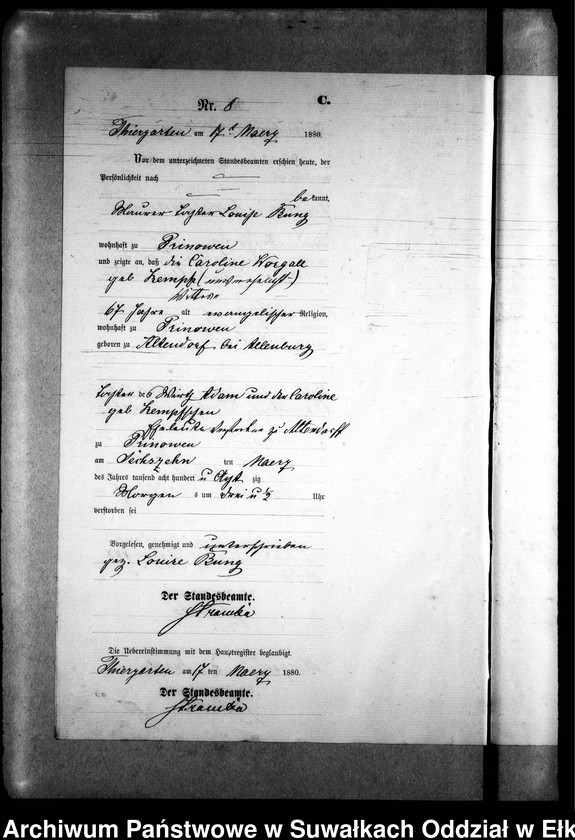 C.
Nr. 8
Thiergarten am 17t Maerz 1880.
Vor dem unterzeichneten Standesbeamten erschien heute, der
Persönlichkeit nach
bekannt,
Maurer Tochter Louise Bung
wohnhaft zu Prinowen
und zeigte an, daß die Caroline Worgall
geb Kempf (unverehelicht)
Wittwe
67 Jahre alt evangelischer Religion,
wohnhaft zu Prinowen
geboren zu Altendorf bei Allenburg
Tochter des Wirth Adam und der Caroline
geb Kempfschen
Eheleute verstorben zu Altendorff
zu Prinowen
am Sechszehn ten Maerz
des Jahres tausend acht hundert u Acht zig
Morgen s um drei u ½ Uhr
verstorben sei
Vorgelesen, genehmigt und unterschrieben
gez. Louise Bung
Der Standesbeamte.
Die Uebereinstimmung mit dem Hauptregister beglaubigt.
Thiergarten am 17 ten Maerz 1880.
Der Standesbeamte.
Archiwum Państwowe w Suwałkach Oddział w Ełk